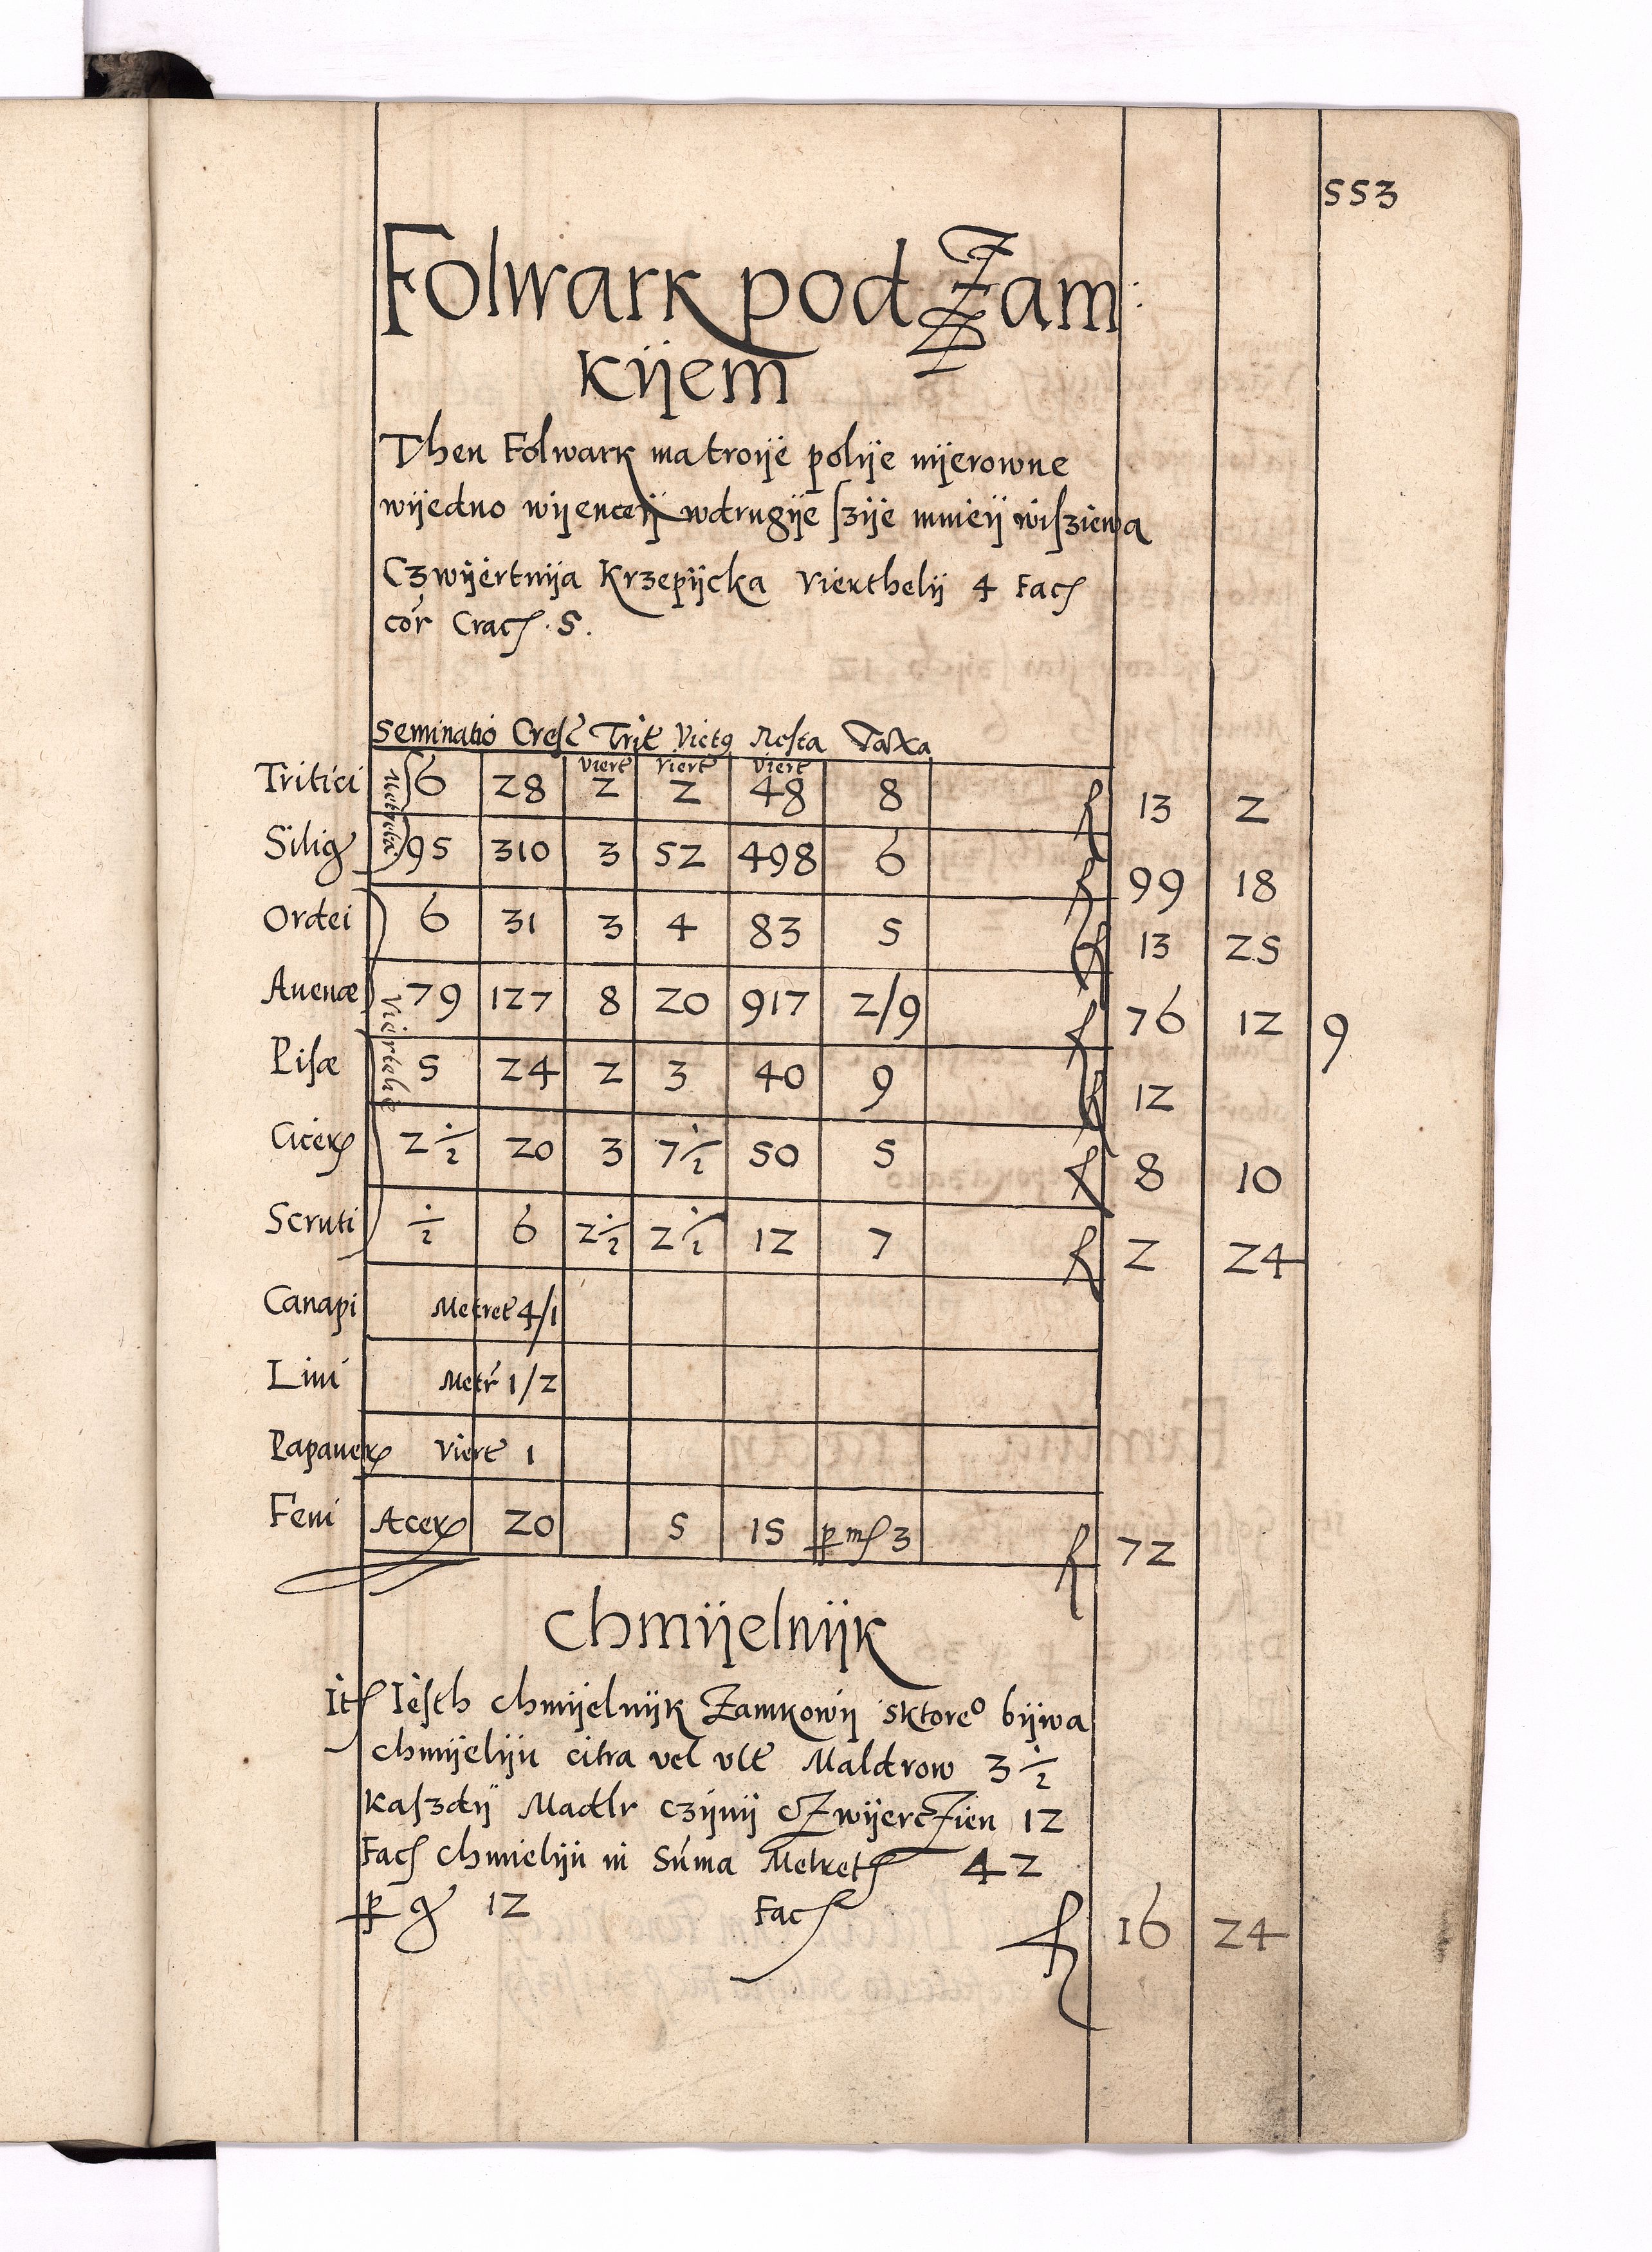 553
Folwark pod Zam:
kijem
Then Folwark ma troije polije nijerowne
wijedno wijenceij wdrugije szije mnieij wisziewa
Czwijertnija Krzepijcka vierthelij 4 Fac
cor Crac. 5.
Seminatio Cresc Trit Victq Resta Taxa
viert viert viert
Tritici 6 28 2 2 48 8 f 13 2
Silig 95 310 3 52 498 6 f 99 18
Ordei 6 31 3 4 83 5 f 13 25
Auenæ 79 127 8 20 917 2/9 f 76 12 9
Pisæ 5 24 2 3 40 9 f 12
Cicer 2 ½ 20 3 7 ½ 50 5 f 8 10
Scruti ½ 6 2 ½ 2 ½ 12 7 f 2 24
Canapi Metret 4/1
Lini Metr 1/2
Papauer Viert 1
Feni Acer 20 5 15 p m 3 f 72
Chmijelnijk
It Iesth chmijelnijk Zamkowij sktoreo bijwa
chmijeliju citra vel vlt Maldrow 3 ½
kaszdij Madlr czijnij CZwijercZien 12
Fac chmieliju in Suma Metret 42
p g 12 Fac f 16 24